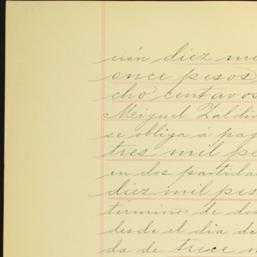 ción diez mi
once pesos
cho centavos
Miguel Zaldi
se obliga á pag
tres mil pe
en dos partida
diez mil pes
término de do
desde el dia de
da de trece m